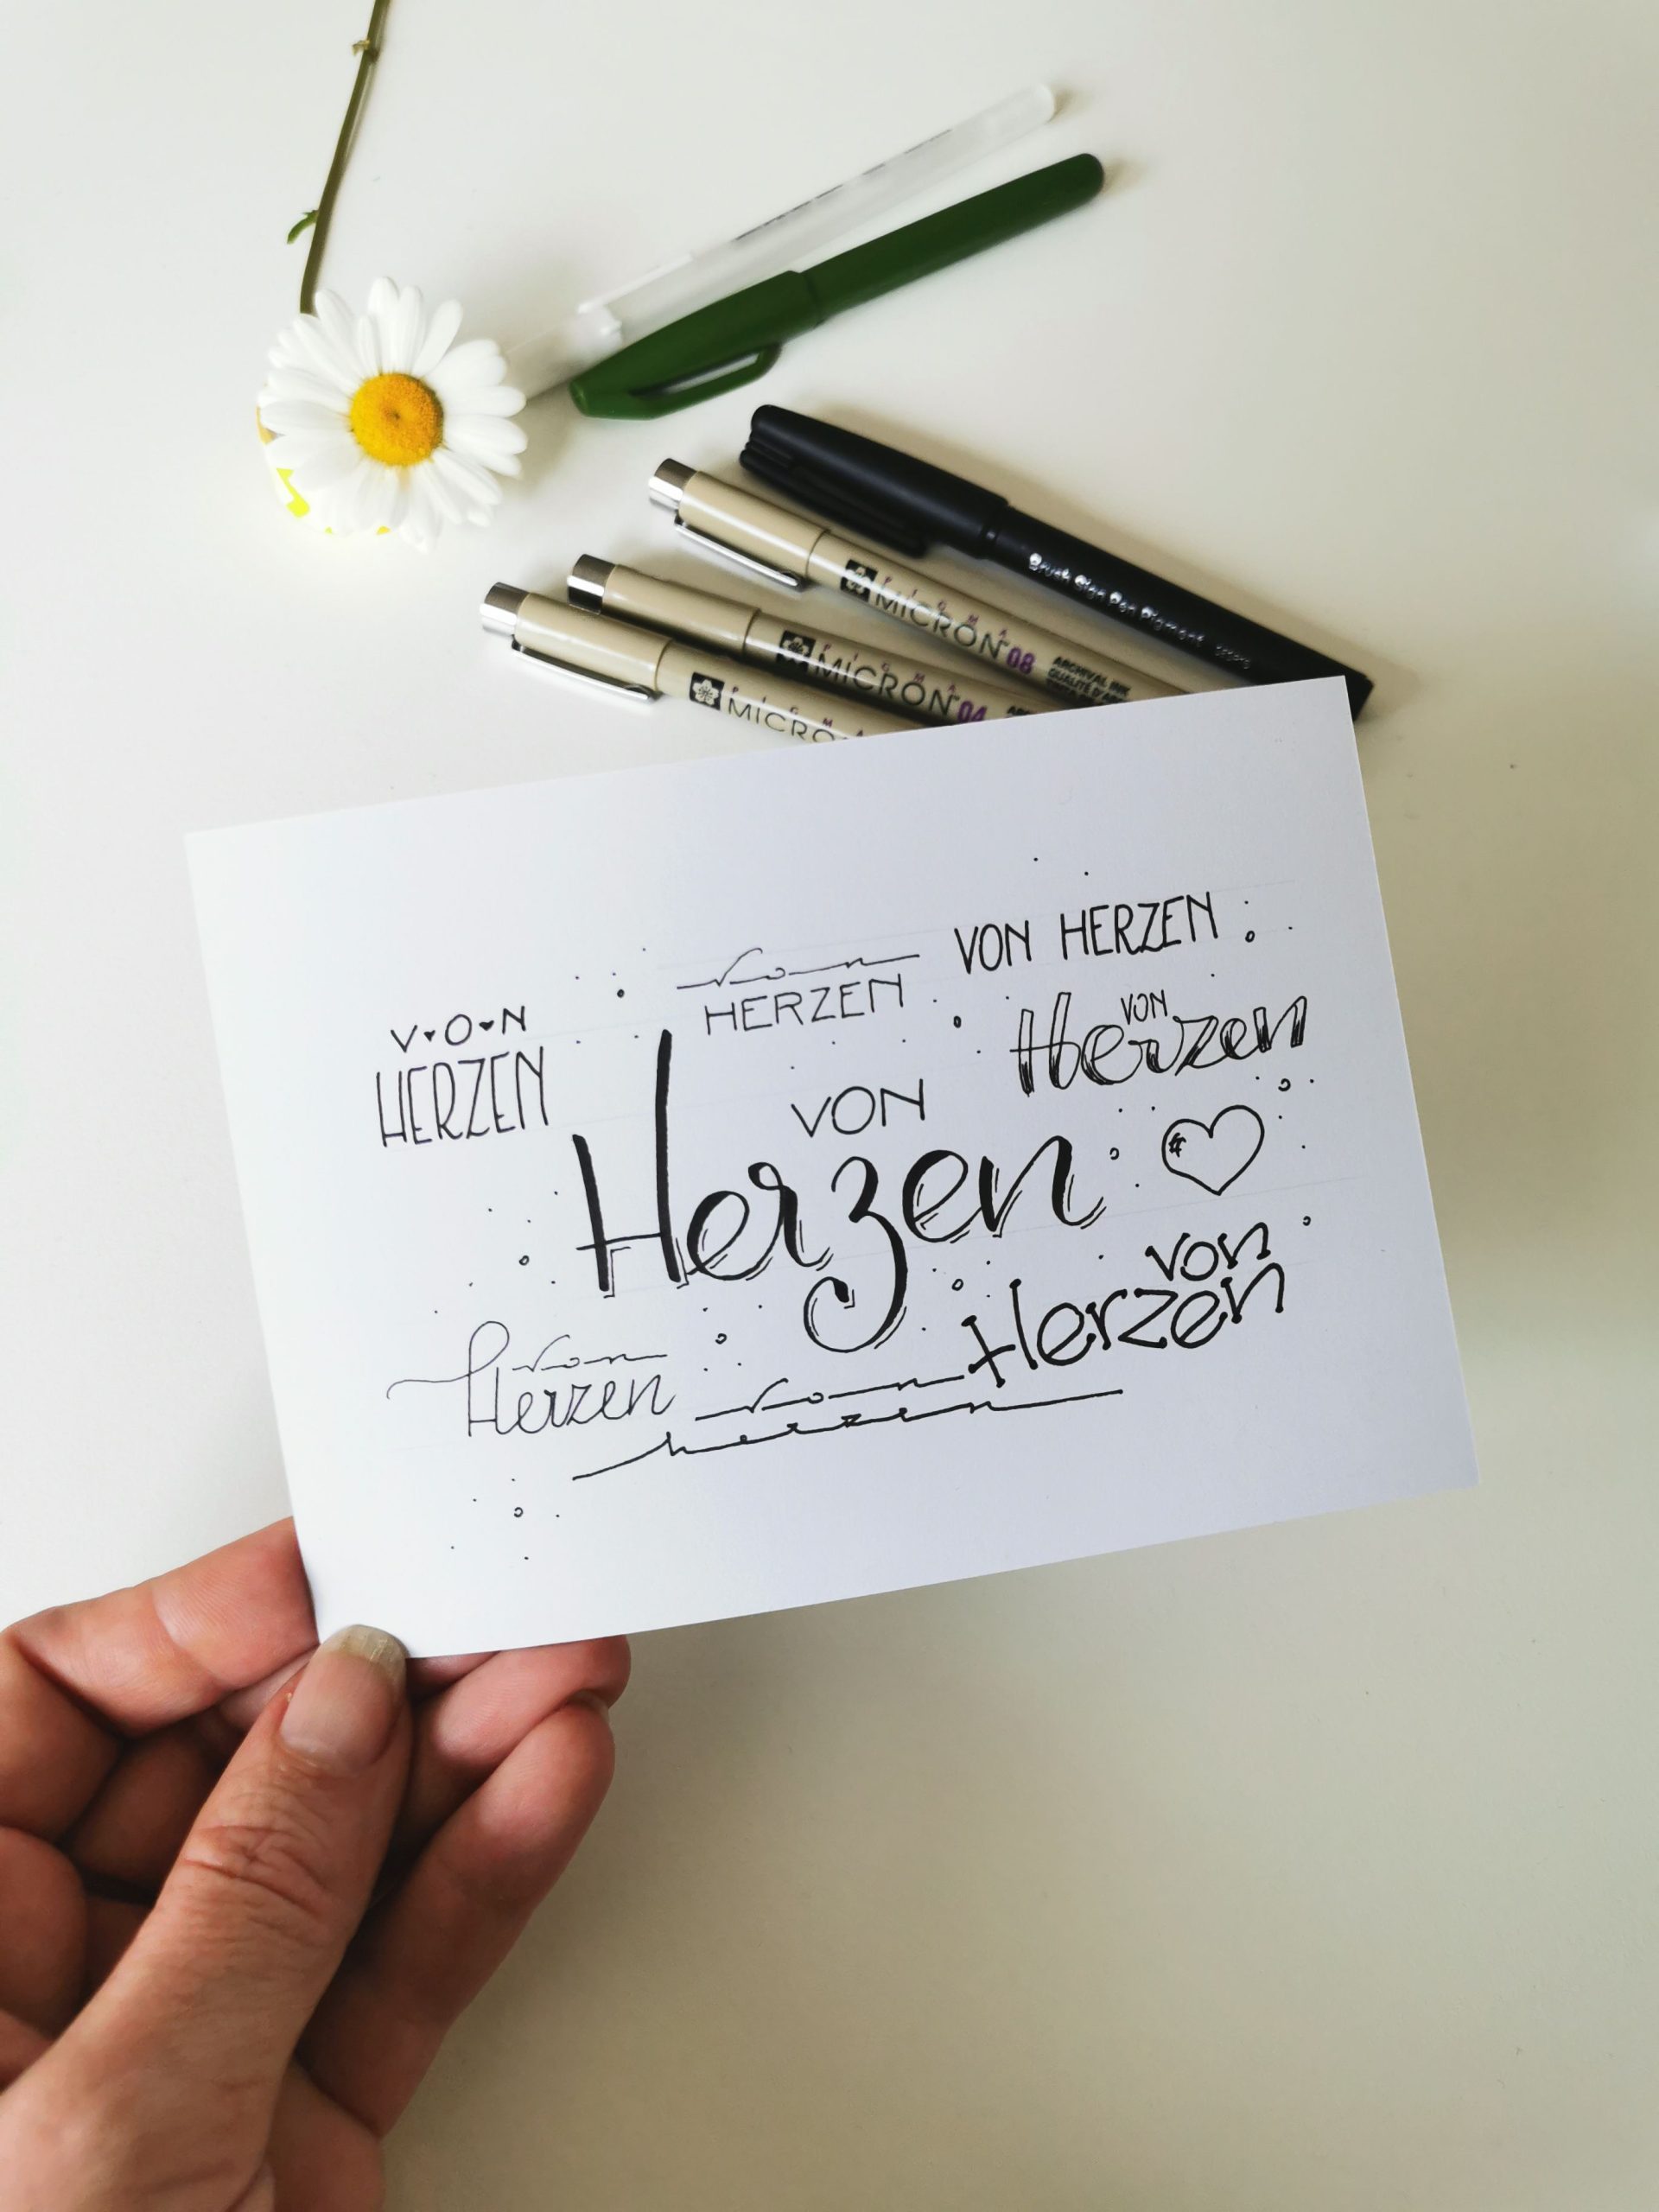 PIGMA
MICRON 08
ARCHIVAL INK
Brush Sign Pen Pigment
PIGMA
MICRON 04
PIGMA
MICRO
von
HERZEN
VON HERZEN
V♥O♥N
HERZEN
VON
Herzen
VON
Herzen
von
Herzen
von
Herzen
von
herzen